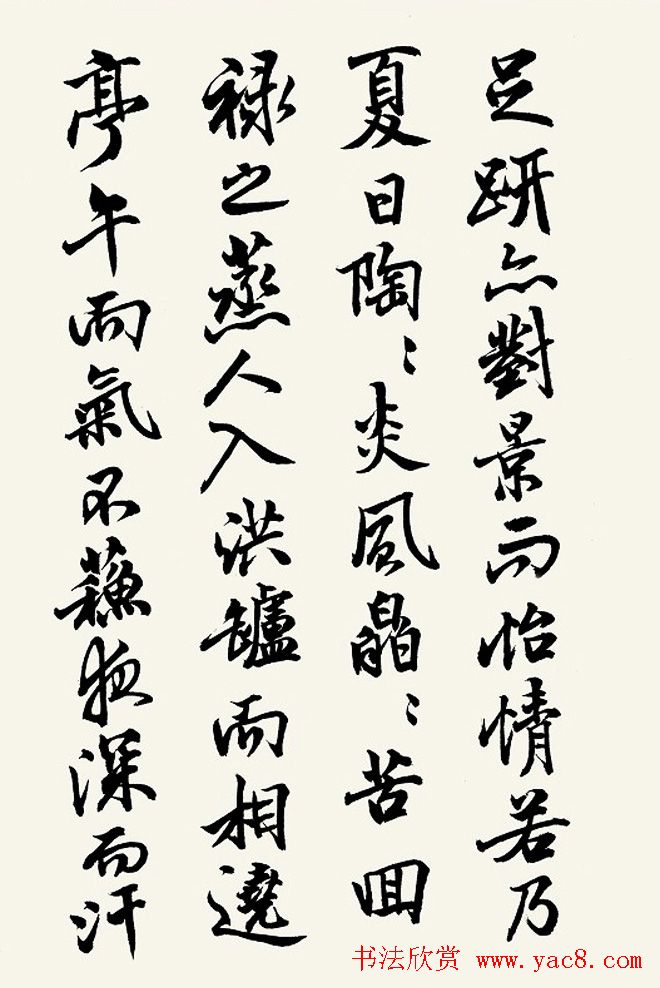 足趼亦對景而怡情若乃
夏日陶〻炎風皛〻苦回
祿之蒸人入洪罏而相遶
亭午而氣不蘓夜深而汗
书法欣赏 www.yac8.com